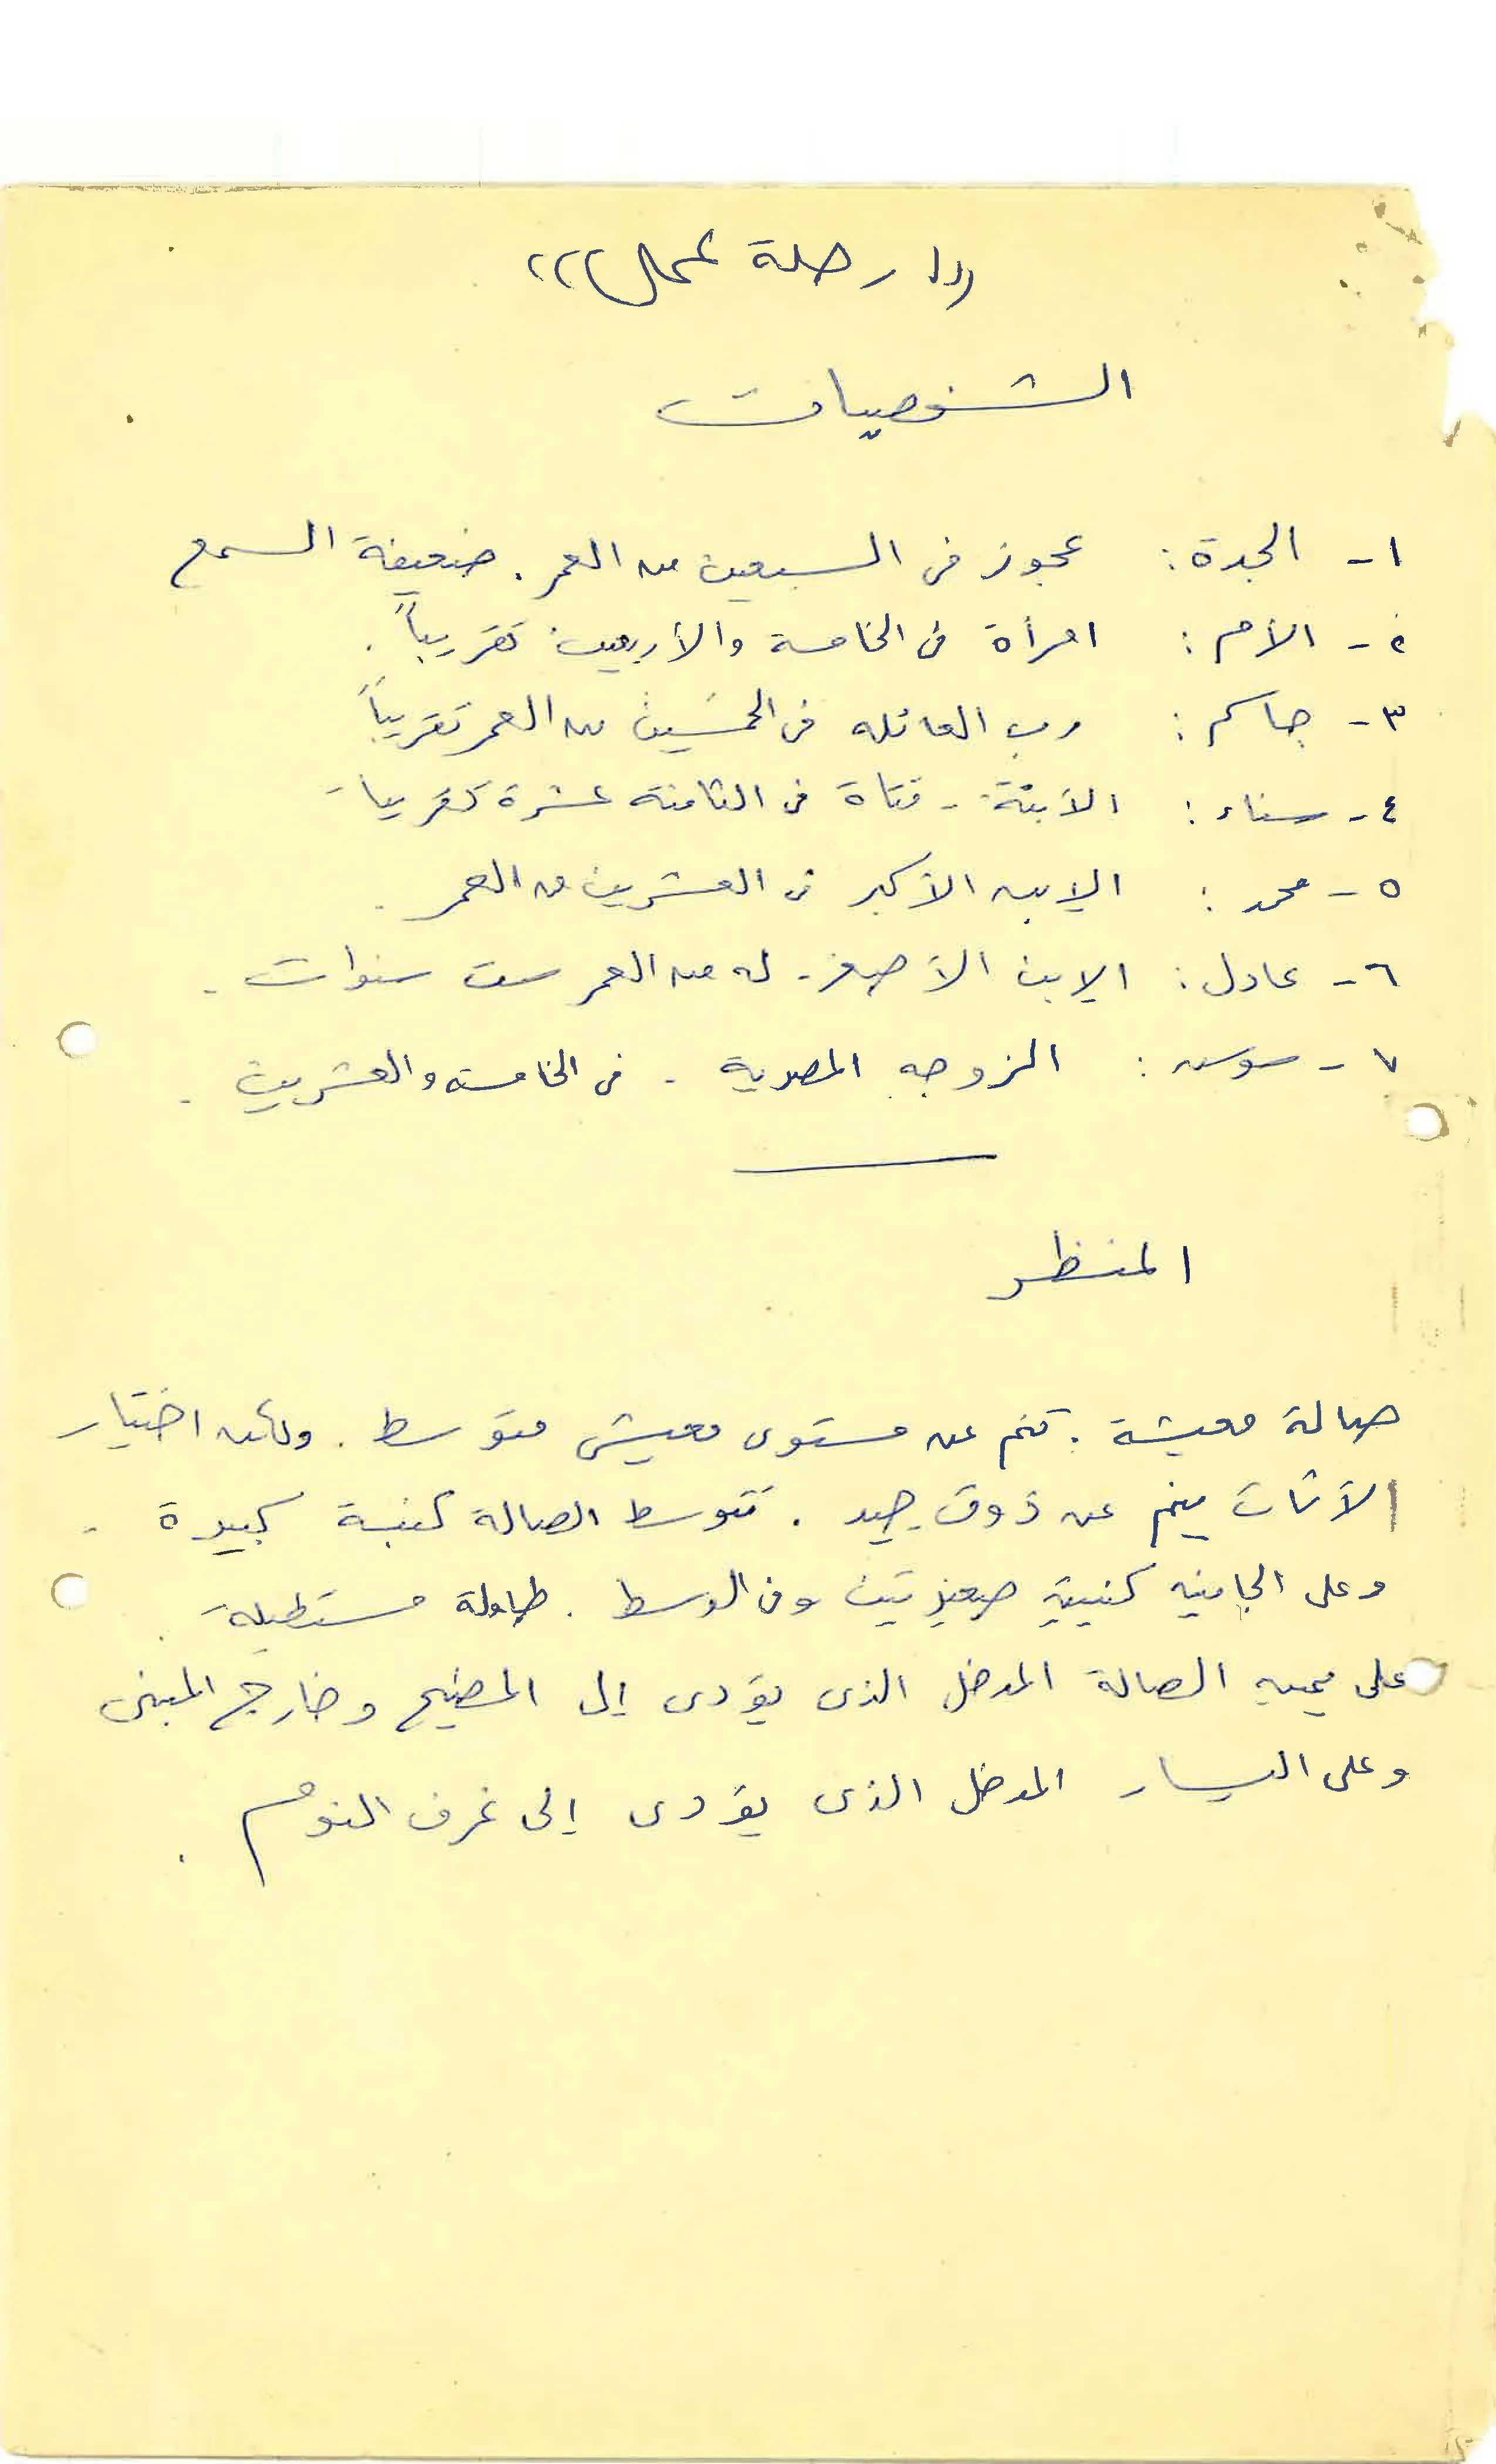 (( رحلة عمل ))
الشخصيات
١- الجدة : عجوز فى السبعين من العمر . ضعيفة السمع
٢- الأم : امرأة فى الخامسة والأربعين تقريباً .
٣- جاسم : رب العائله فى الخمسين من العمر تقريباً
٤- سناء : الأبنة - فتاة فى الثامنة عشرة تقريبا
٥- محمد : الابن الأكبر فى العشرين من العمر .
٦- عادل : الابن الأصغر - له من العمر ست سنوات .
٧- سوسن : الزوجه المصرية - فى الخامسه والعشرين .
المنظر
صالة معيشة . تنم عن مستوى معيشى متوسط . ولكن اختيار
الأثاث ينم عن ذوق جيد . تتوسط الصالة كنبة كبيرة .
وعلى الجانبين كنبتين صغيرتين وفى الوسط . طاولة مستطيلة .
على يمين الصالة المدخل الذى يؤدى إلى المطبخ وخارج المبنى
وعلى اليسار المدخل الذى يؤدى إلى غرف النوم .